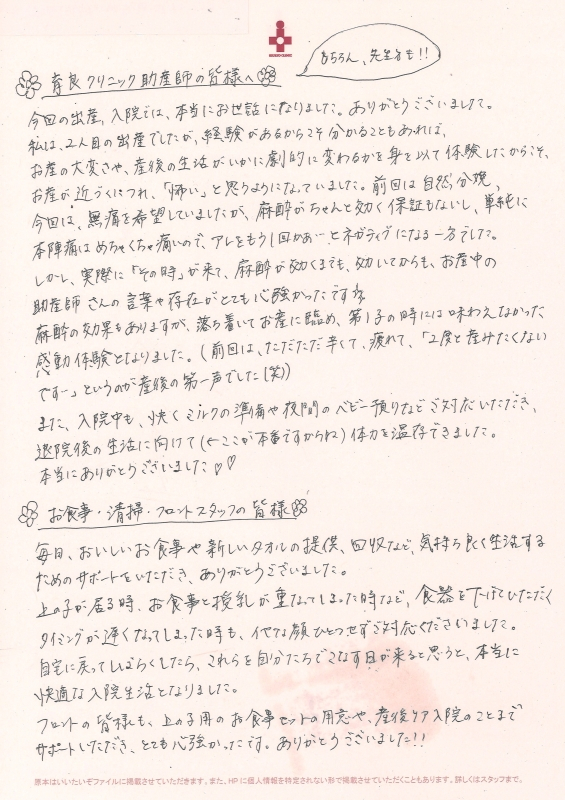 もちろん、先生も!!
育良クリニック助産師の皆様へ
今回の出産、入院では、本当にお世話になりました。ありがとうございました。
私は、2人目の出産でしたが、経験があるからこそ分かることもあれば、
お産の大変さや、産後の生活がいかに劇的に変わるかを身を以て体験したからこそ、
お産が近づくにつれ、「怖い」と思うようになっていました。前回は自然分娩、
今回は、無痛を希望していましたが、麻酔がちゃんと効く保証もないし、単純に
本陣痛はめちゃくちゃ痛いので、アレをもう1回かぁ…とネガティブになる一方でした。
しかし、実際に「その時」が来て、麻酔が効くまでも、効いてからも、お産中の
助産師さんの言葉や存在がとても心強かったです
麻酔の効果もありますが、落ち着いてお産に臨め、第1子の時には味わえなかった
感動体験となりました。(前回は、ただただ辛くて、疲れて、「2度と産みたくない
ですー」というのが産後の第一声でした(笑))
また、入院中も、快くミルクの準備や夜間のベビー預りなどご対応いただき、
退院後の生活に向けて(←ここが本番ですからね)体力を温存できました。
本当にありがとうございました♡♡
お食事・清掃・フロントスタッフの皆様
毎日、おいしいお食事や新しいタオルの提供、回収など、気持ち良く生活する
ためのサポートをいただき、ありがとうございました。
上の子が居る時、お食事と授乳が重なってしまった時など、食器を下げていただく
タイミングが遅くなってしまった時も、イヤな顔ひとつせずご対応くださいました。
自宅に戻ってしばらくしたら、これらを自分たちでこなす日が来ると思うと、本当に
快適な入院生活となりました。
フロントの皆様も、上の子用のお食事セットの用意や、産後ケア入院のことまで
サポートいただき、とても心強かったです。ありがとうございました!!
原本はいいたいぞファイルに掲載させていただきます。また、HPに個人情報を特定されない形で掲載させていただくこともあります。詳しくはスタッフまで。